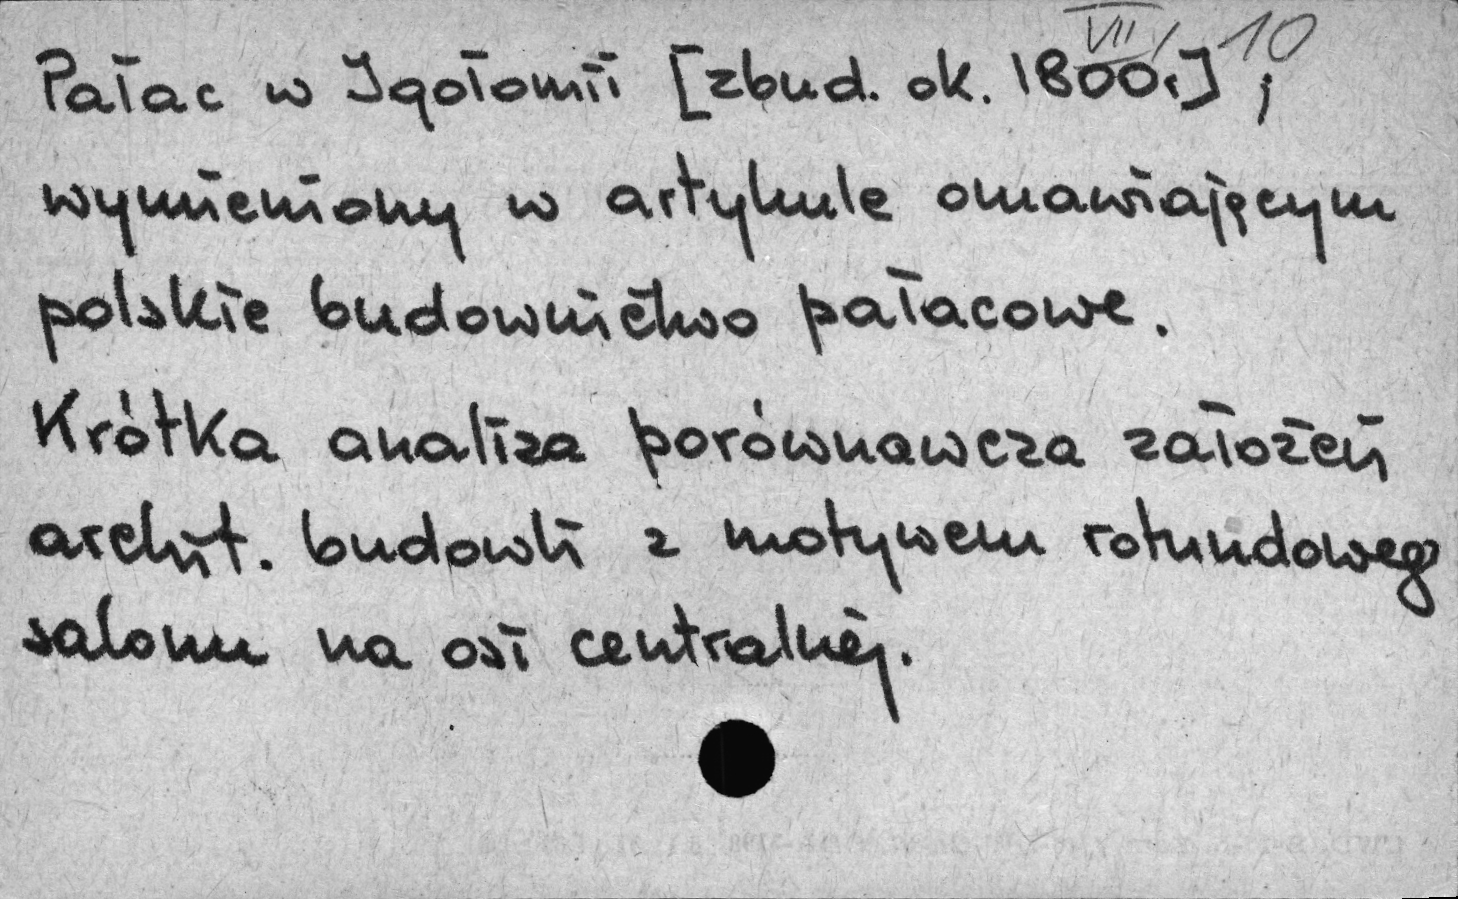 VII/10
Pałac w Igołomii [zbud. ok. 1800r] ;
wymieniony w artykule omawiającym
polskie budownictwo pałacowe.
Krótka analiza porównawcza założeń
archit. budowli z motywem rotundowego
salonu na osi centralnej.